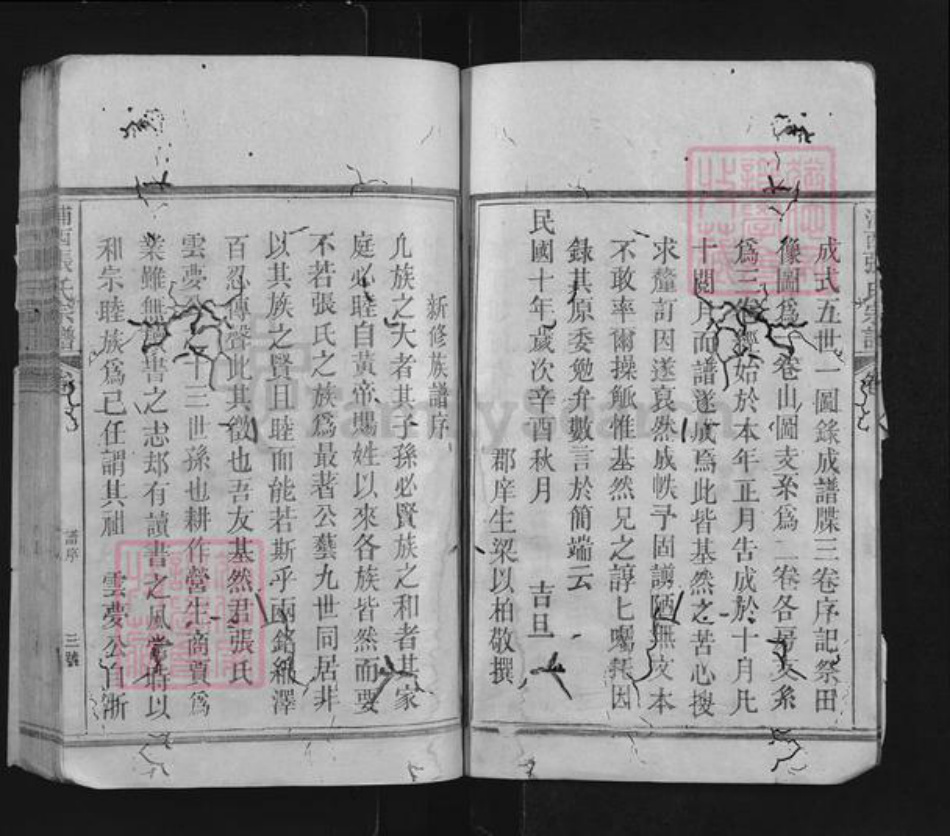 成式五世一圖錄成譜牒三卷序記祭田
像圖爲一卷山圖支系爲二卷各房支系
爲三卷經始於本年正月告成於十月凡
十閱月而譜遂成焉此皆基然之苦心搜
求釐訂因遂裒然成帙予固謭陋無文本
不敢率爾操觚惟基然兄之諄七囑托因
錄其原委勉弁數言於簡端云
民國十年歲次辛酉秋月 吉旦
郡庠生梁以柏敬撰
新修族譜序
凢族之大者其子孫必賢族之和者其家
庭必睦自黃帝賜姓以來各族皆然而要
不若張氏之族爲最著公藝九世同居非
以其族之賢且睦而能若斯乎兩銘綿澤
百忍傳聲此其徵也吾友基然君張氏
雲夢公 十三世孫也耕作營生商賈爲
業雖無 書之志却有讀書之風嘗特以
和宗睦族爲己任謂其祖 雲夢公自浙
張氏宗譜
譜序
三號